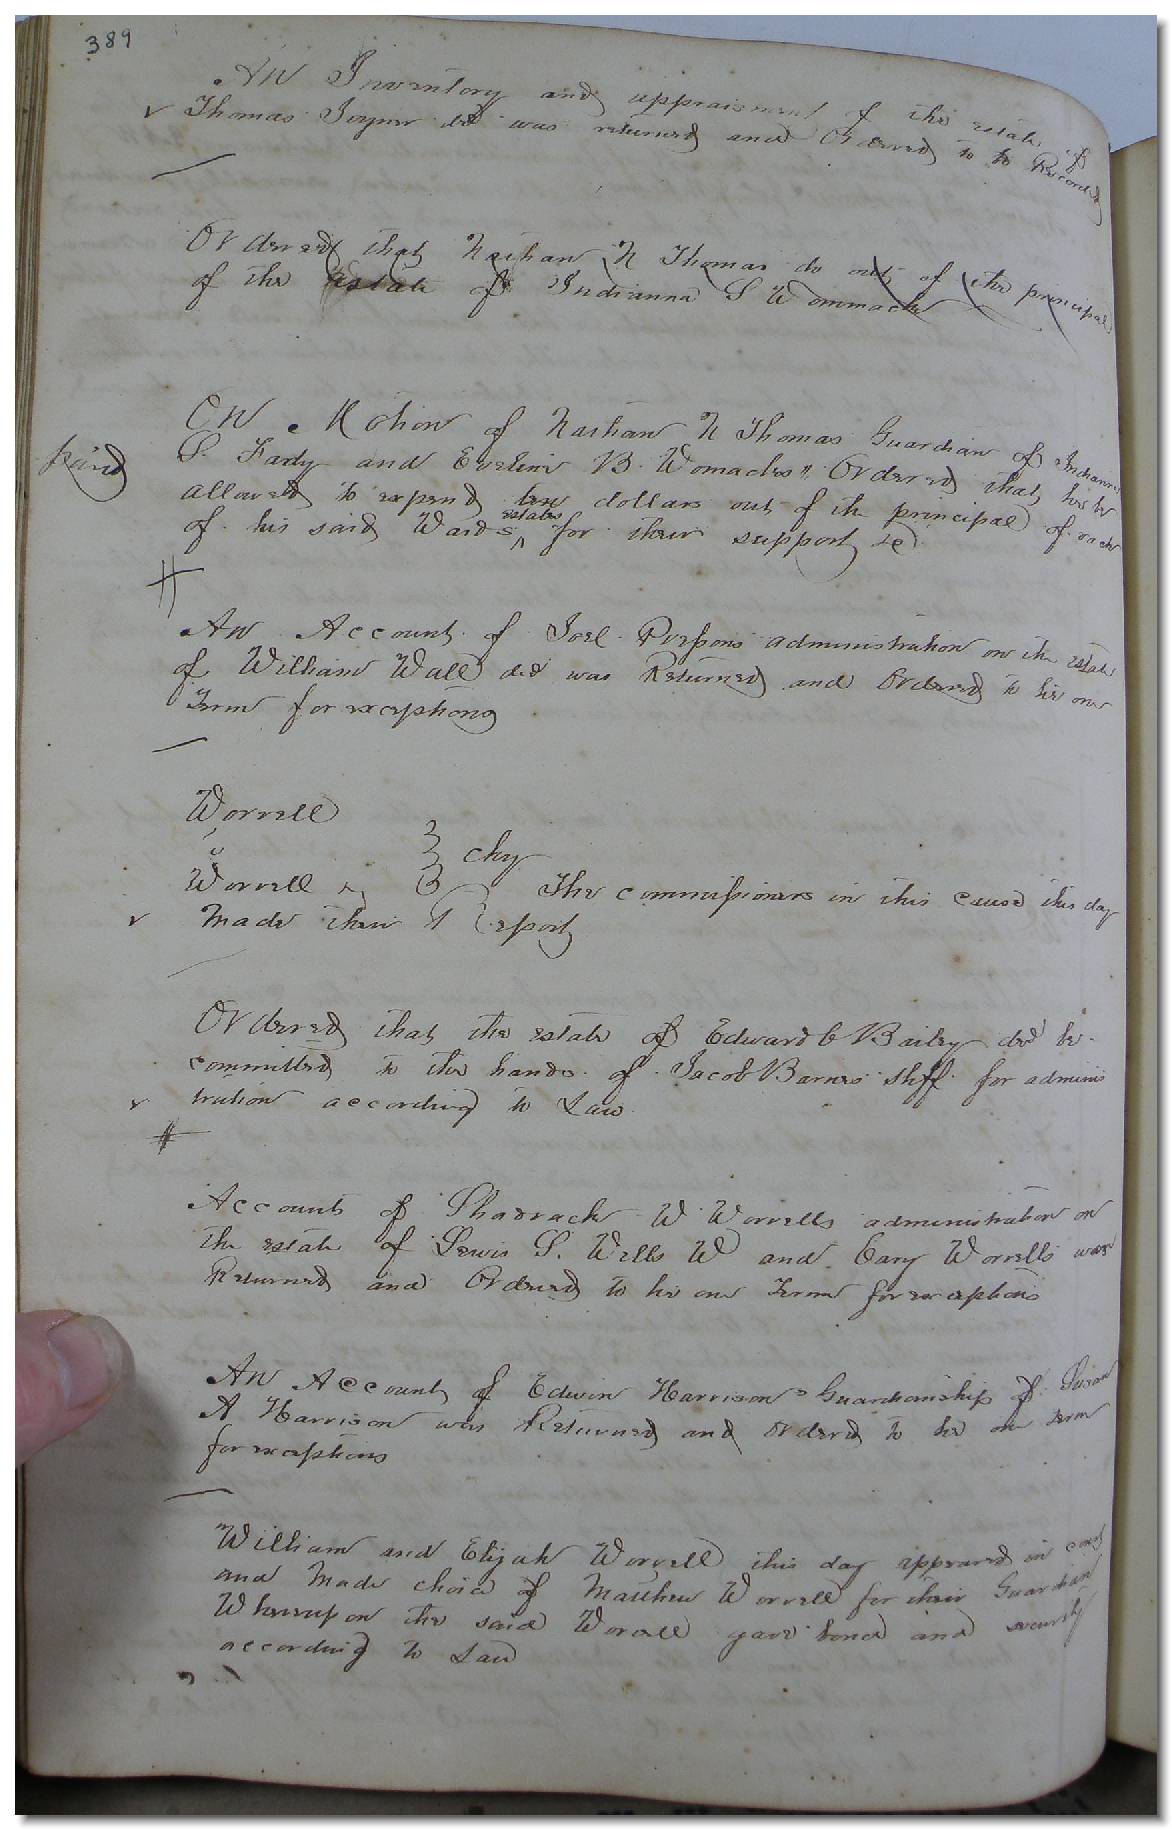 389
An Inventory and appraisment of the estate of
Thomas Joyner decd was returned and Ordered to be Recorded
Ordered that Nathan N Thomas do out of the principal
of the estate of Indianna S Wommack
On Motion of Nathan N Thomas Guardian of Indianna
S. and B. Womacks" Ordered that he be
paid
allowed to expend ten dollars out of the principal of each
estates
of his said Wards ^ for their support &c
An Account of Joel Persons administration on the estate
of William Wall decd was Returned and Ordered to lie one
Term for exceptions
Worrell
v
Worrell } chy The commissioners in this cause this day
Made their Report
Ordered that the estate of Edward C Bailey decd be
committed to the hands of Jacob Barnes Shff for adminis
tration according to Law
Accounts of Shadrack W Worrells administration on
the estate of Lewis S. Wells W and Cary Worrells was
Returned and Ordered to lie one Term for exceptions
An Account of Edwin Harrisons Guardianship of Susan
A Harrison was Returned and ordered to lie one term
for exceptions
William and Elijah Worrell this day appeared in court
and Made choice of Matthew Worrell for their Guardian
Whereupon the said Worrell gave bond and security
according to Law